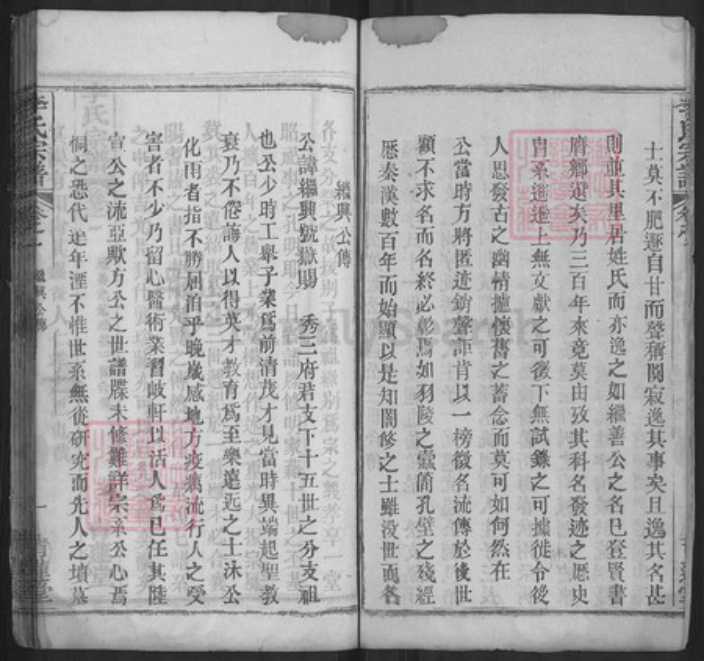 士莫不肥遯自甘而聲稱闃寂逸其事矣且逸其名甚
則並其里居姓氏而亦逸之如繼善公之名已登賢書
膺鄉選矣乃三百年來竟莫由攷其科名發迹之歷史
冑系逍遥上無文獻之可徵下無試錄之可據徒令後
人思發古之幽情攄懷舊之蓄念而莫可如何然在
公當時方將匿迹銷聲詎肯以一榜微名流傳於後世
顧不求名而名終必彰焉如羽陵之蠹簡孔壁之殘經
歷秦漢數百年而始顯以是知闇修之士雖没世而名
繼興公傳
公諱繼興號嶽賜 秀三府君支下十五世之分支祖
也公少時工舉子業爲前清茂才見當時異端起聖教
衰乃不倦誨人以得英才教育爲至樂遠近之士沐公
化雨者指不勝屈洎乎晚歲感地方疫癘流行人之受
害者不少乃留心醫術業習岐軒以活人爲已任其陸
宣公之流亞歟方公之世譜牒未修難詳宗系公心焉
恫之恐代遠年湮不惟世系無從研究而先人之墳墓
李氏宗譜
卷之一
繼興公傳
一
青蓮堂